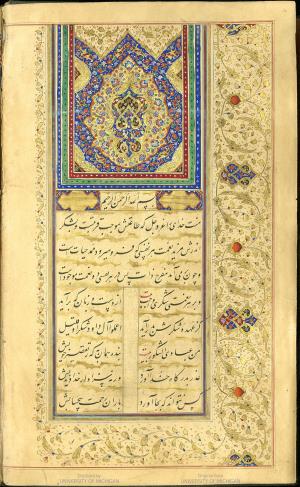 بسم الله الرحمن الرحیم
منت خدای را عز و جل که طاعتش موجب قربتست و بشکر
اندرش مزید نعمت هر نفسی که فرو میرود ممد حیات است
و چون بر می آید مفرح ذات پس در هر نفسی دو نعمت
و بر هر نعمتی شکری از دست و زبان که برآید
کز عهده شکرش آید اعملوا آل داود شکرا و قلیل
من عبادی الشکور بنده همان به که ز تقصیر خویش
عذر بدرگاه خدا آورد ورنه سزاوار خداوندیش
کس نتواند که بجا آورد باران رحمت بیحسابش
Digitized by
UNIVERSITY OF MICHIGAN
Original from
UNIVERSITY OF MICHIGAN